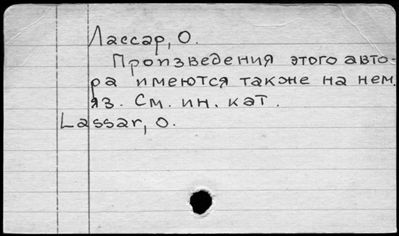 Лассар, О.
Произведения этого авто-
ра имеются также на нем.
яз. См. ин. кат.
Lassar, O.